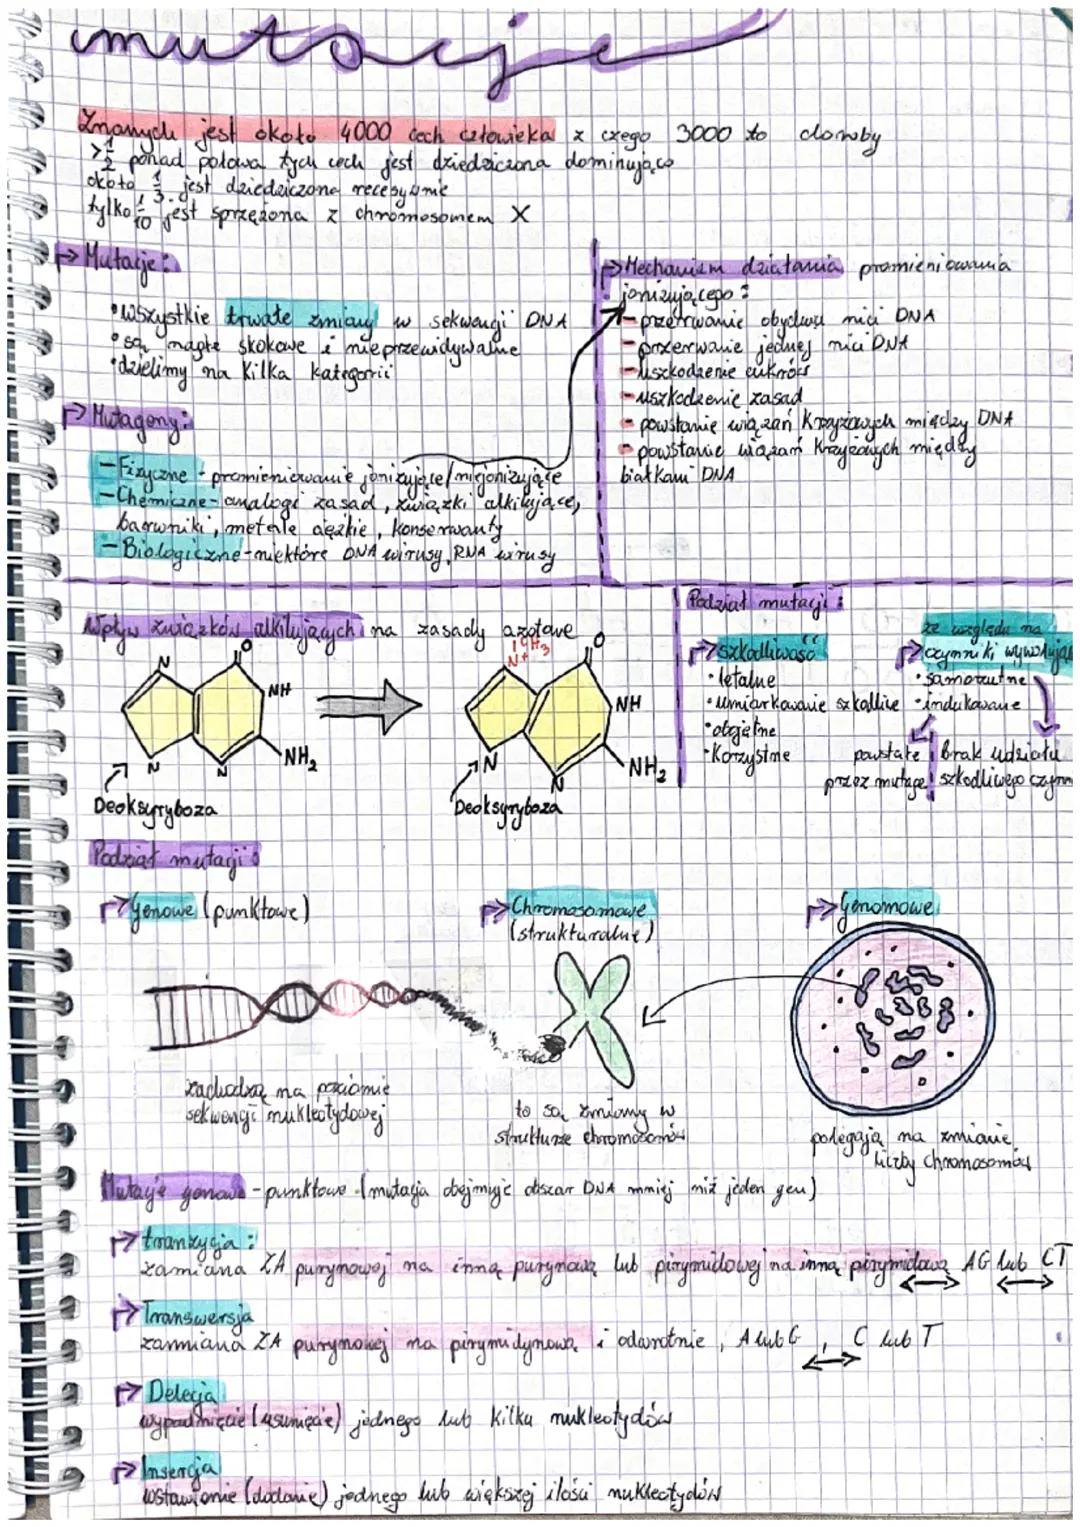 mutacje
Znanych jest około 4000 cech człowieka z czego 3000 to choroby
>½ ponad połowa tych cech jest dziedziczona dominująco
około ⅓ jest dziedziczona recesywnie
tylko 1/10 jest sprzężona z chromosomem X
Mutacje:
•wszystkie trwałe zmiany w sekwencji DNA
•są nagłe skokowe i nieprzewidywalne
•dzielimy na kilka kategorii
Mutageny:
-Fizyczne - promieniowanie jonizujące/niejonizujące
-Chemiczne - analogi zasad, związki alkilujące,
barwniki, metale ciężkie, konserwanty
-Biologiczne - niektóre DNA wirusy, RNA wirusy
Mechanizm działania promieniowania
jonizującego:
- przerwanie obydwu nici DNA
- przerwanie jednej nici DNA
- uszkodzenie cukrów
- uszkodzenie zasad
- powstanie wiązań krzyżowych między DNA
- powstanie wiązań krzyżowych między
białkami DNA
Wpływ związków alkilujących na zasady azotowe
N
O
NH
NH₂
N
N
Deoksyryboza
CH₃
N+
O
NH
NH₂
N
N
Deoksyryboza
Podział mutacji:
szkodliwość
•letalne
•umiarkowanie szkodliwe
•obojętne
•korzystne
ze względu na
czynniki wywołując
•samorzutne
•indukowane
powstałe
przez mutage
brak udziału
szkodliwego czynn
Podział mutacji:
Genowe (punktowe)
Chromosomowe
(strukturalne)
Genomowe
zachodzą na poziomie
sekwencji nukleotydowej
to są zmiany w
strukturze chromosomów
polegają na zmianie
liczby chromosomów
Mutacje genowe - punktowe (mutacja obejmuje obszar DNA mniej niż jeden gen)
tranzycja:
zamiana ZA purynowej na inną purynową lub pirymidowej na inną pirymidową AG lub CT
Transwersja
zamiana ZA purynowej na pirymidynową i odwrotnie, A lub G, C lub T
Delecja
wypadnięcie (usunięcie) jednego lub kilku nukleotydów
Insercja
wstawienie (dodanie) jednego lub większej ilości nukleotydów